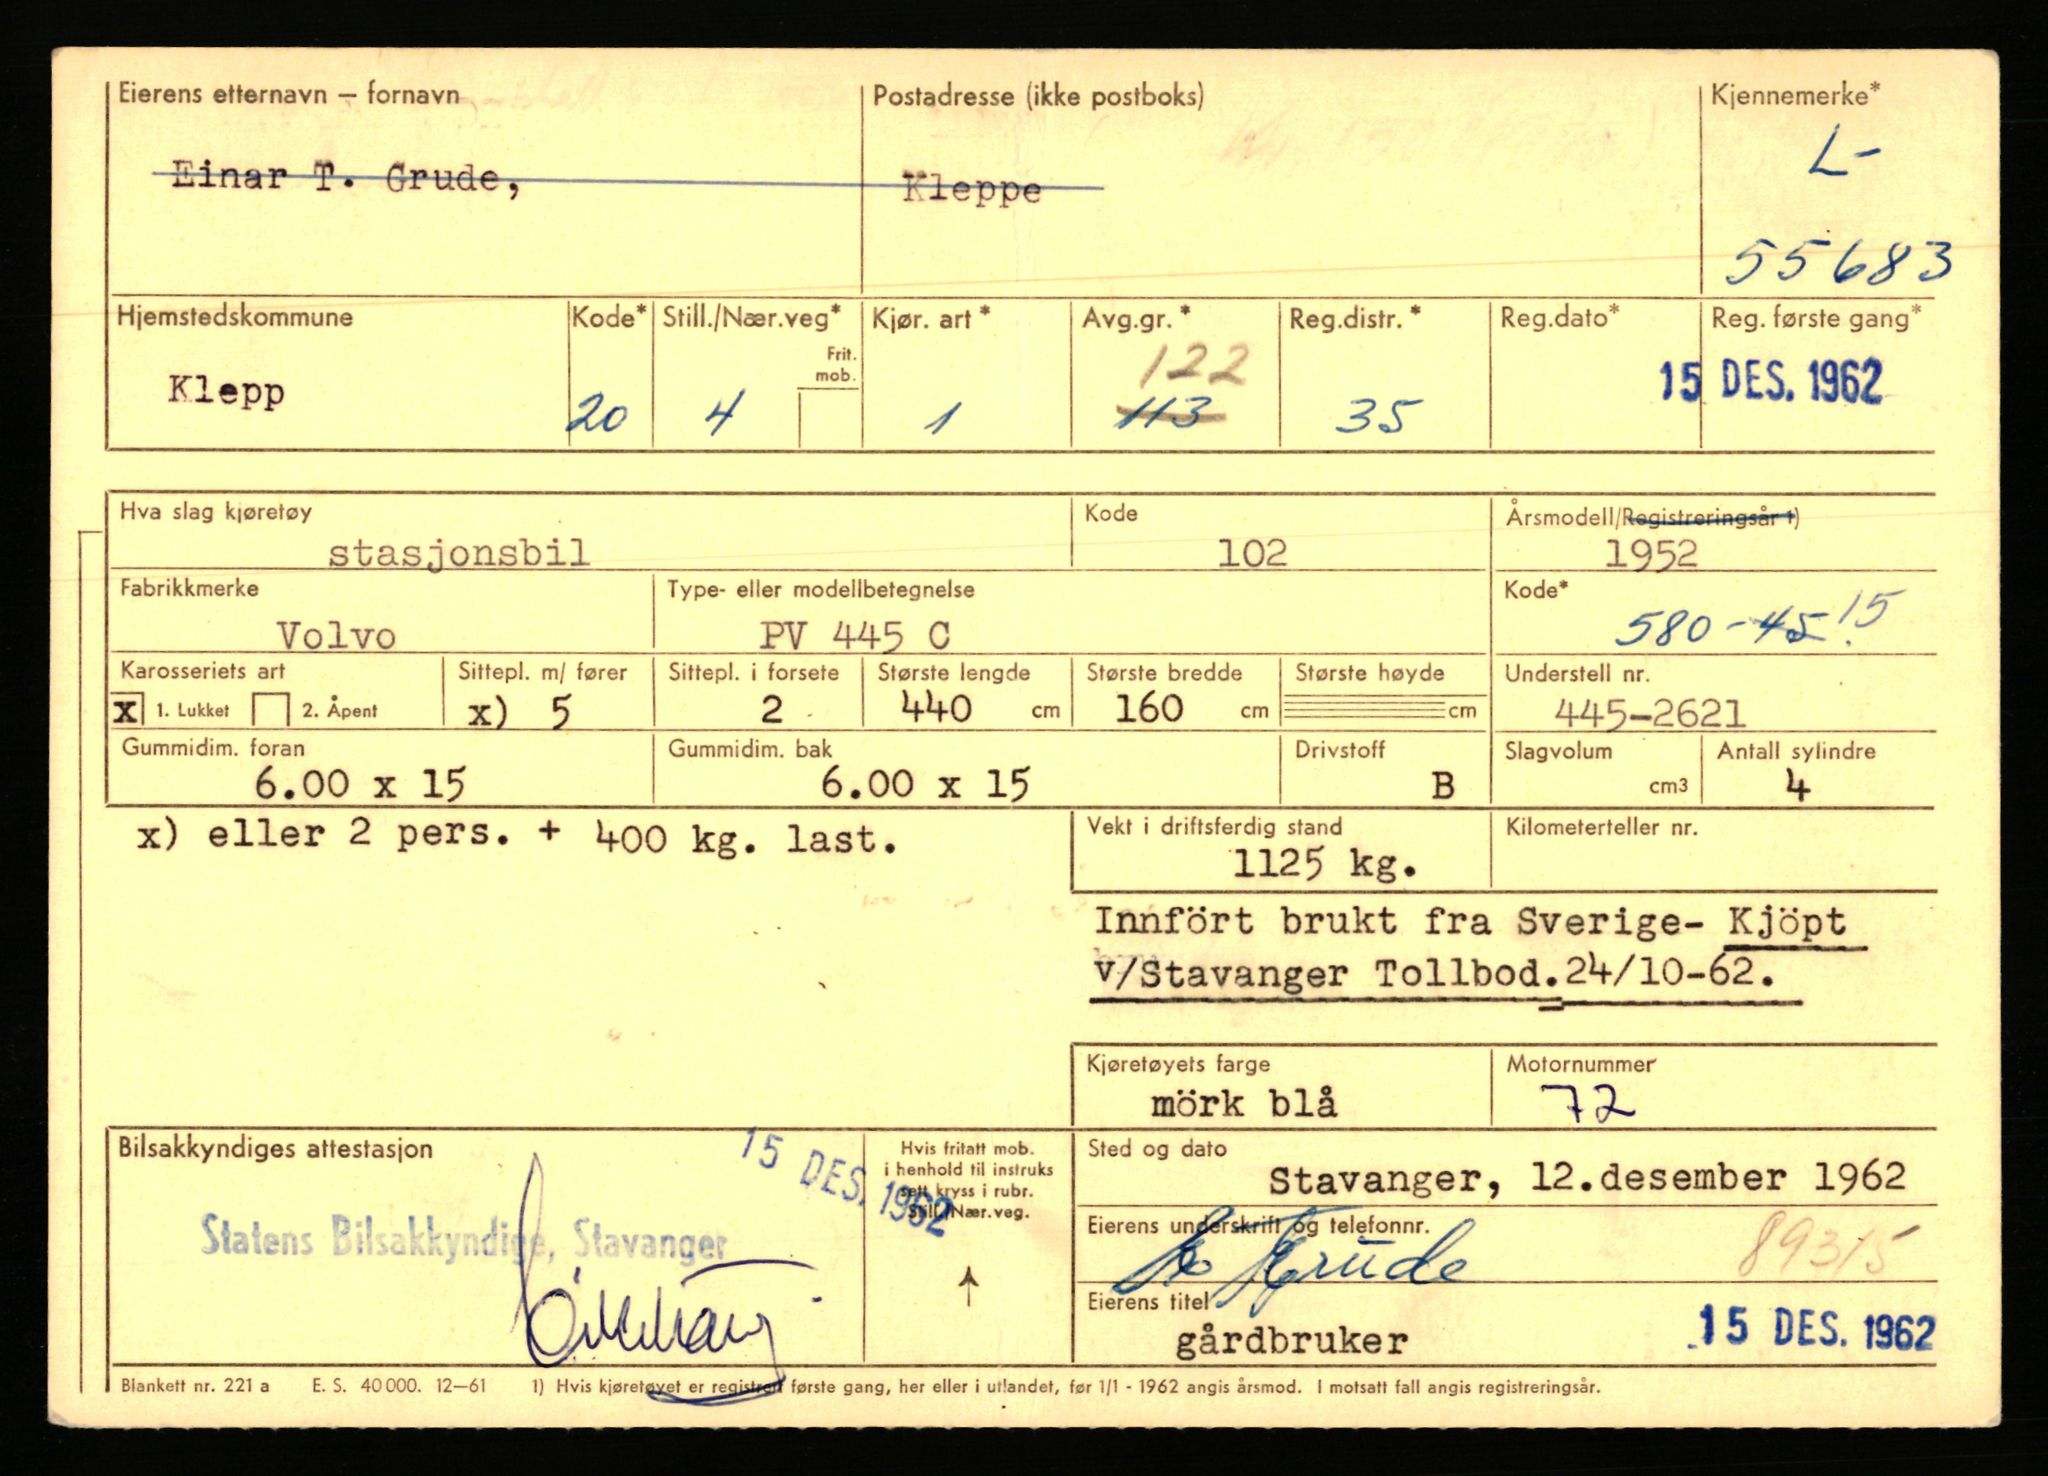 Eierens etternavn — fornavn
Postadresse (ikke postboks)
Kjennemerke*
Einar T. Grude,
Kleppe
L-
55683
Hjemstedskommune
Kode*
Still./Nær.veg*
Kjør. art *
Avg.gr. *
Reg.distr. *
Reg.dato*
Reg. første gang*
Frit.
mob.
122
Klepp
20
4
1
113
35
15 DES. 1962
Hva slag kjøretøy
Kode
Årsmodell/Registreringsår 1)
stasjonsbil
102
1952
Fabrikkmerke
Type- eller modellbetegnelse
Kode*
Volvo
PV 445 C
580-45 15
Karosseriets art
Sittepl. m/ fører
Sittepl. i forsete
Største lengde
Største bredde
Største høyde
Understell nr.
X 1. Lukket
2. Åpent
x) 5
2
440 cm
160 cm
cm
445-2621
Gummidim. foran
Gummidim. bak
Drivstoff
Slagvolum
Antall sylindre
6.00 x 15
6.00 x 15
B
cm3
4
x) eller 2 pers. + 400 kg. last.
Vekt i driftsferdig stand
Kilometerteller nr.
1125 kg.
Innfört brukt fra Sverige- Kjöpt
v/Stavanger Tollbod.24/10-62.
Kjøretøyets farge
Motornummer
mörk blå
72
Bilsakkyndiges attestasjon
15 DES. 1962
Hvis fritatt mob.
i henhold til instruks
sett kryss i rubr.
Still./Nær.veg.
Sted og dato
Stavanger, 12.desember 1962
Statens Bilsakkyndige, Stavanger
Eierens underskrift og telefonnr.
Grude
89315
Eierens titel
gårdbruker
15 DES. 1962
Blankett nr. 221 a E. S. 40 000. 12—61 1) Hvis kjøretøyet er registrert første gang, her eller i utlandet, før 1/1 - 1962 angis årsmod. I motsatt fall angis registreringsår.